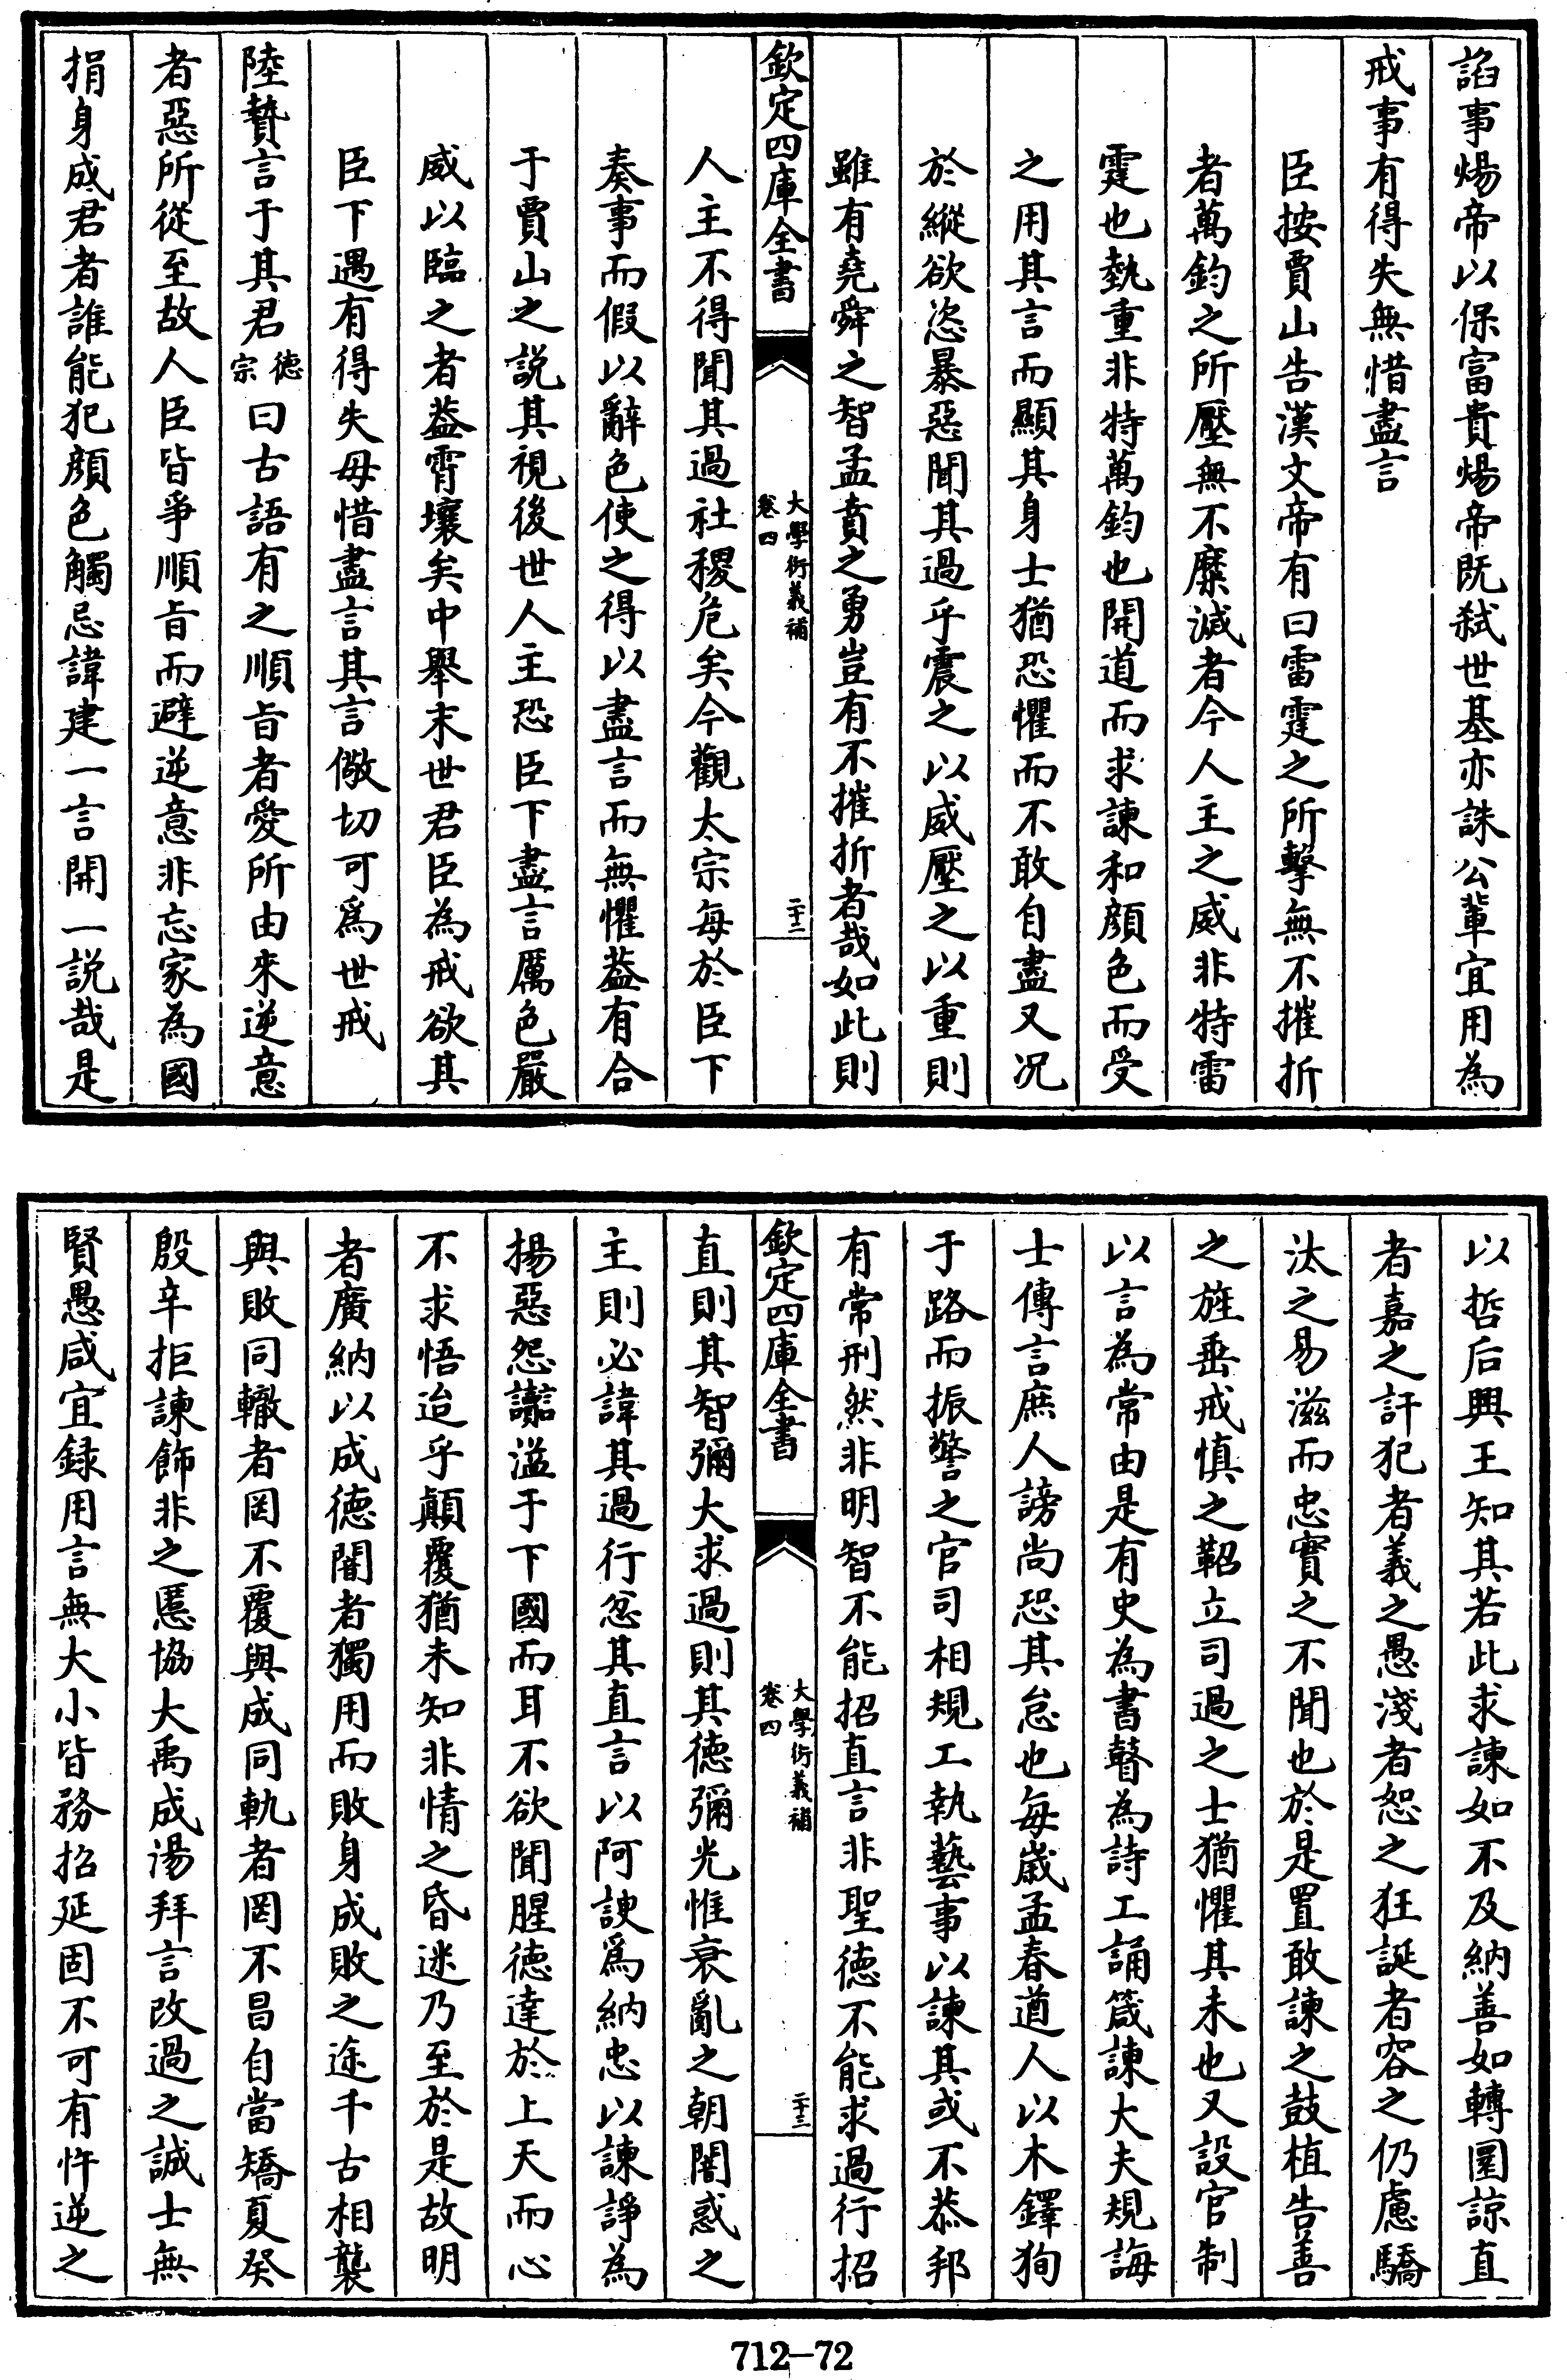 諂事煬帝以保富貴煬帝既弑世基亦誅公輩宜用為
戒事有得失無惜盡言
臣按賈山告漢文帝有曰雷霆之所擊無不摧折
者萬鈞之所壓無不糜滅者今人主之威非特雷
霆也埶重非特萬鈞也開道而求諫和顔色而受
之用其言而顯其身士猶恐懼而不敢自盡又况
於縱欲恣暴惡聞其過乎震之以威壓之以重則
雖有堯舜之智孟賁之勇豈有不摧折者哉如此則
欽定四庫全書
大學衍義補
卷四
二十二
人主不得聞其過社稷危矣今觀太宗每於臣下
奏事而假以辭色使之得以盡言而無懼葢有合
于賈山之説其視後世人主恐臣下盡言厲色嚴
威以臨之者葢霄壤矣中舉末世君臣為戒欲其
臣下遇有得失毋惜盡言其言儆切可爲世戒
陸贄言于其君德宗曰古語有之順㫖者愛所由來逆意
者惡所從至故人臣皆爭順㫖而避逆意非忘家為國
捐身成君者誰能犯顔色觸忌諱建一言開一説哉是
以哲后興王知其若此求諫如不及納善如轉圜諒直
者嘉之訐犯者義之愚淺者恕之狂誕者容之仍慮驕
汰之易滋而忠實之不聞也於是置敢諫之鼓植告善
之旌垂戒慎之鞀立司過之士猶懼其未也又設官制
以言為常由是有史為書瞽為詩工誦箴諫大夫規誨
士傳言庶人謗尚恐其怠也每嵗孟春遒人以木鐸狥
于路而振警之官司相規工執藝事以諫其或不恭邦
有常刑然非明智不能招直言非聖德不能求過行招
欽定四庫全書
大學衍義補
卷四
二十三
直則其智彌大求過則其德彌光惟衰亂之朝闇惑之
主則必諱其過行忿其直言以阿諛爲納忠以諫諍為
揚惡怨讟溢于下國而耳不欲聞腥德達於上天而心
不求悟迨乎顛覆猶未知非情之昏迷乃至於是故明
者廣納以成德闇者獨用而敗身成敗之途千古相襲
與敗同轍者罔不覆與成同軌者罔不昌自當矯夏癸
殷辛拒諫飾非之慝協大禹成湯拜言改過之誠士無
賢愚咸宜録用言無大小皆務招延固不可有忤逆之
712-72